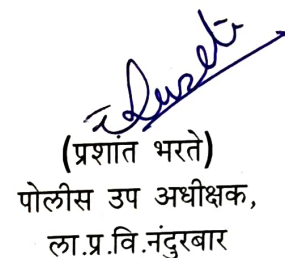 (प्रशांत भरते)
पोलीस उप अधीक्षक,
ला.प्र.वि.नंदुरबार